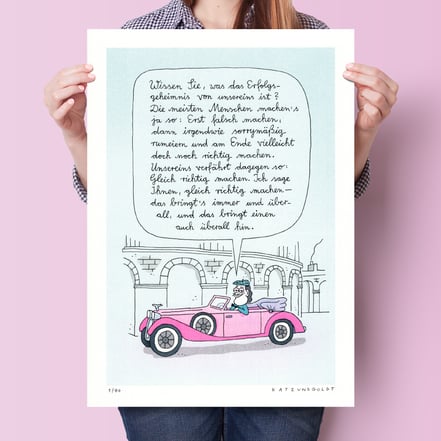 Wissen Sie, was das Erfolgs-
geheimnis von unsereins ist?
Die meisten Menschen machen's
ja so: Erst falsch machen,
dann irgendwie sorrymäßig
rumeiern und am Ende vielleicht
doch noch richtig machen.
Unsereins verfährt dagegen so:
Gleich richtig machen. Ich sage
Ihnen, gleich richtig machen—
das bringt's immer und über-
all, und das bringt einen
auch überall hin.
KATZ UND GOLDT